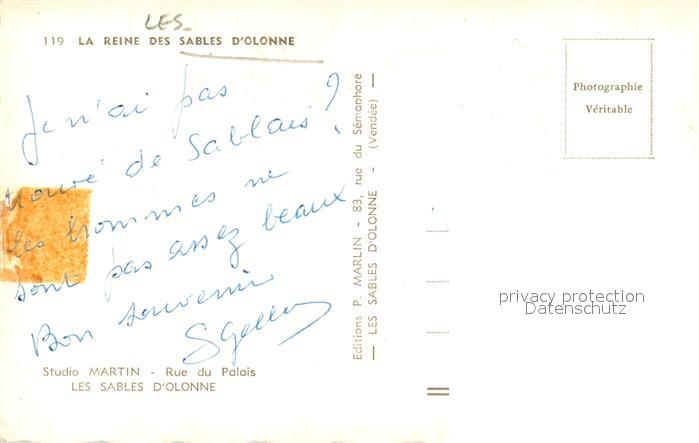 LES
119 LA REINE DES SABLES D'OLONNE
Je n'ai pas
trouvé de Sablais ?
les hommes ne
sont pas assez beaux
Bon souvenir
Studio MARTIN - Rue du Palais
LES SABLES D'OLONNE
Editions P. MARLIN - 83, rue du Sémaphore
— LES SABLES D'OLONNE - (Vendée) —
Photographie
Véritable
privacy protection
Datenschutz